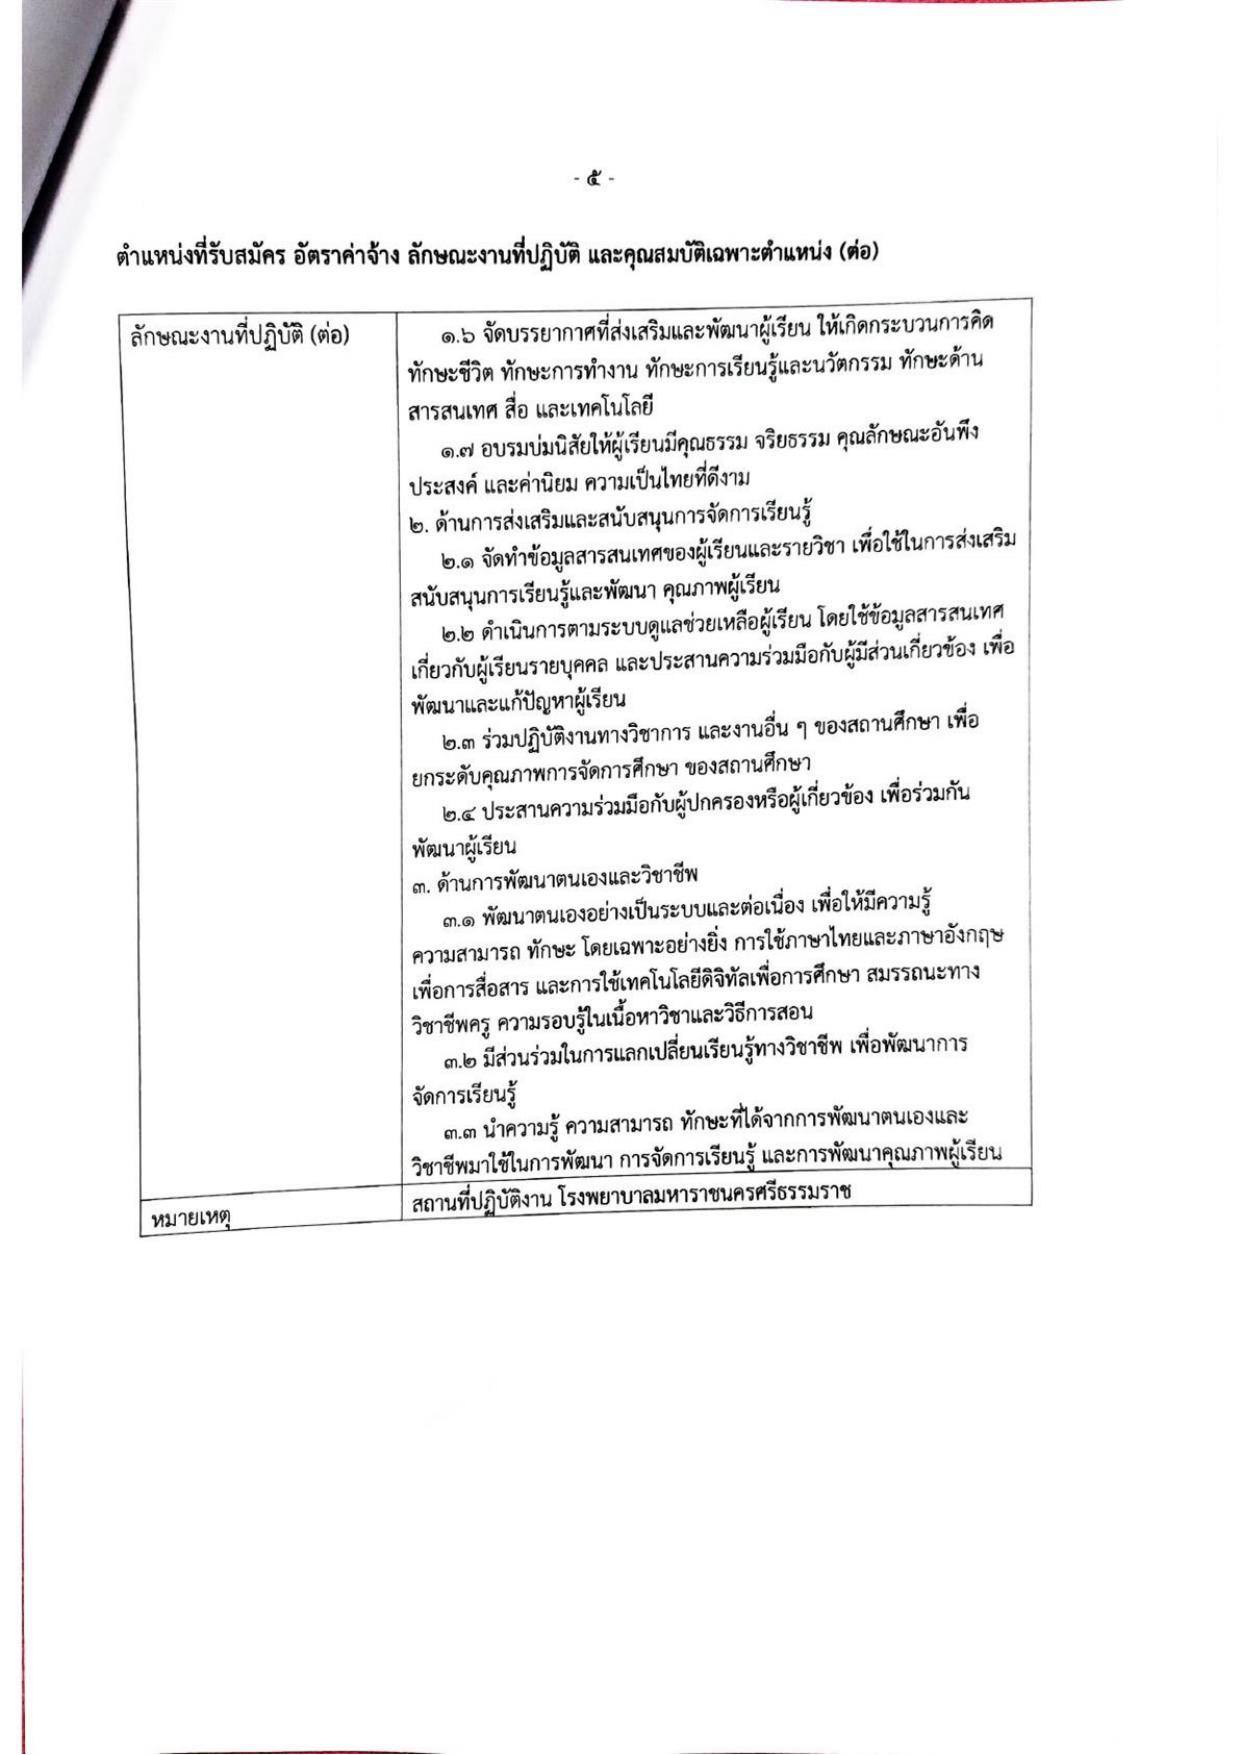 - ๕ -
ตำแหน่งที่รับสมัคร อัตราค่าจ้าง ลักษณะงานที่ปฏิบัติ และคุณสมบัติเฉพาะตำแหน่ง (ต่อ)
ลักษณะงานที่ปฏิบัติ (ต่อ)
๑.๖ จัดบรรยากาศที่ส่งเสริมและพัฒนาผู้เรียน ให้เกิดกระบวนการคิด
ทักษะชีวิต ทักษะการทำงาน ทักษะการเรียนรู้และนวัตกรรม ทักษะด้าน
สารสนเทศ สื่อ และเทคโนโลยี
๑.๗ อบรมบ่มนิสัยให้ผู้เรียนมีคุณธรรม จริยธรรม คุณลักษณะอันพึง
ประสงค์ และค่านิยม ความเป็นไทยที่ดีงาม
๒. ด้านการส่งเสริมและสนับสนุนการจัดการเรียนรู้
๒.๑ จัดทำข้อมูลสารสนเทศของผู้เรียนและรายวิชา เพื่อใช้ในการส่งเสริม
สนับสนุนการเรียนรู้และพัฒนา คุณภาพผู้เรียน
๒.๒ ดำเนินการตามระบบดูแลช่วยเหลือผู้เรียน โดยใช้ข้อมูลสารสนเทศ
เกี่ยวกับผู้เรียนรายบุคคล และประสานความร่วมมือกับผู้มีส่วนเกี่ยวข้อง เพื่อ
พัฒนาและแก้ปัญหาผู้เรียน
๒.๓ ร่วมปฏิบัติงานทางวิชาการ และงานอื่น ๆ ของสถานศึกษา เพื่อ
ยกระดับคุณภาพการจัดการศึกษา ของสถานศึกษา
๒.๔ ประสานความร่วมมือกับผู้ปกครองหรือผู้เกี่ยวข้อง เพื่อร่วมกัน
พัฒนาผู้เรียน
๓. ด้านการพัฒนาตนเองและวิชาชีพ
๓.๑ พัฒนาตนเองอย่างเป็นระบบและต่อเนื่อง เพื่อให้มีความรู้
ความสามารถ ทักษะ โดยเฉพาะอย่างยิ่ง การใช้ภาษาไทยและภาษาอังกฤษ
เพื่อการสื่อสาร และการใช้เทคโนโลยีดิจิทัลเพื่อการศึกษา สมรรถนะทาง
วิชาชีพครู ความรอบรู้ในเนื้อหาวิชาและวิธีการสอน
๓.๒ มีส่วนร่วมในการแลกเปลี่ยนเรียนรู้ทางวิชาชีพ เพื่อพัฒนาการ
จัดการเรียนรู้
๓.๓ นำความรู้ ความสามารถ ทักษะที่ได้จากการพัฒนาตนเองและ
วิชาชีพมาใช้ในการพัฒนา การจัดการเรียนรู้ และการพัฒนาคุณภาพผู้เรียน
หมายเหตุ
สถานที่ปฏิบัติงาน โรงพยาบาลมหาราชนครศรีธรรมราช